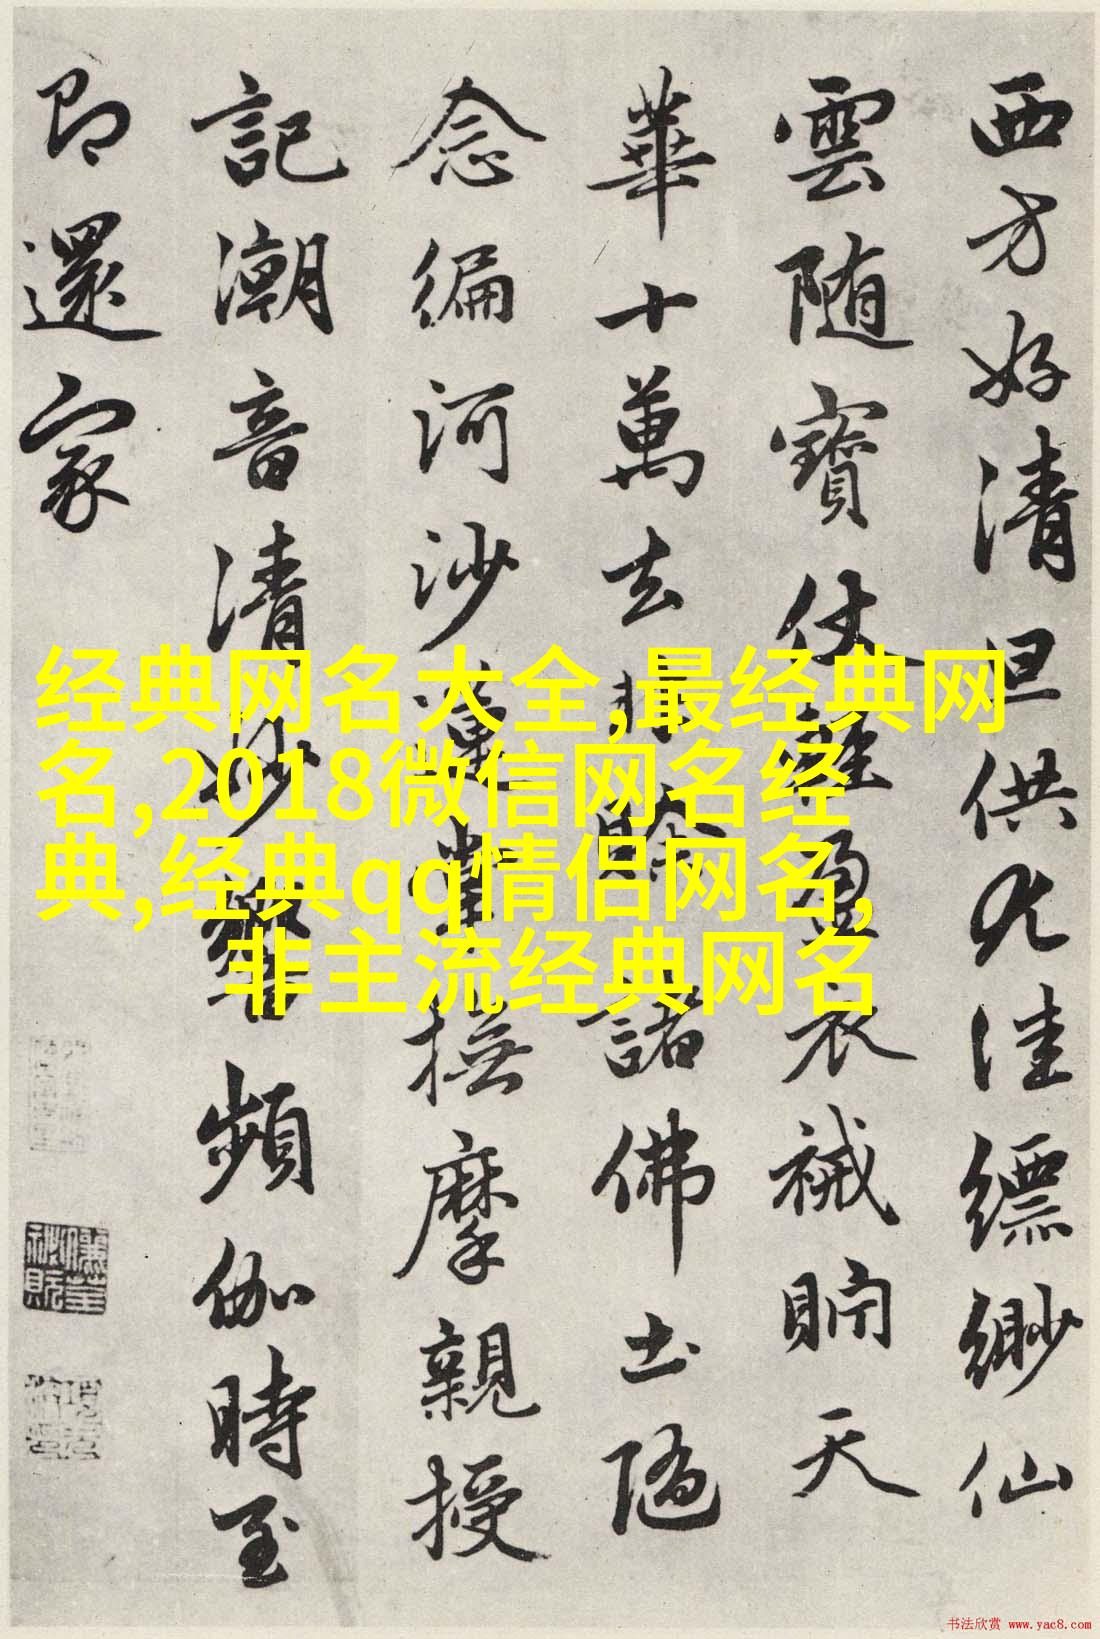 西方好清旦供尤佳縹緲仙
雲随寶仗輕盈衣祴貯天
華十萬去非賖諸佛土隨
念編河沙蓮掌撫摩親授
記潮音清妙響頻伽時至
即還家
经典网名大全,最经典网
名,2018微信网名经
典,经典qq情侣网名,
非主流经典网名
书法欣赏 www.yac8.com